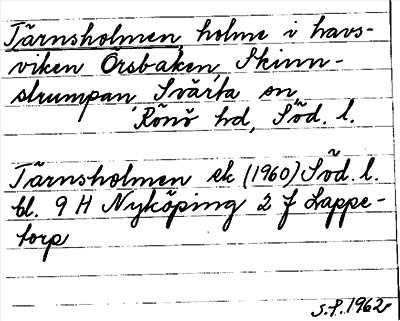 Tärnsholmen holme i havs-
viken Örsbaken, Skinn-
strumpan, Svärta sn
Rönö hd, Söd. l.
Tärnsholmen ek (1960) Söd. l.
bl. 9 H Nyköping 2 f Lappe-
torp
S.F. 1962